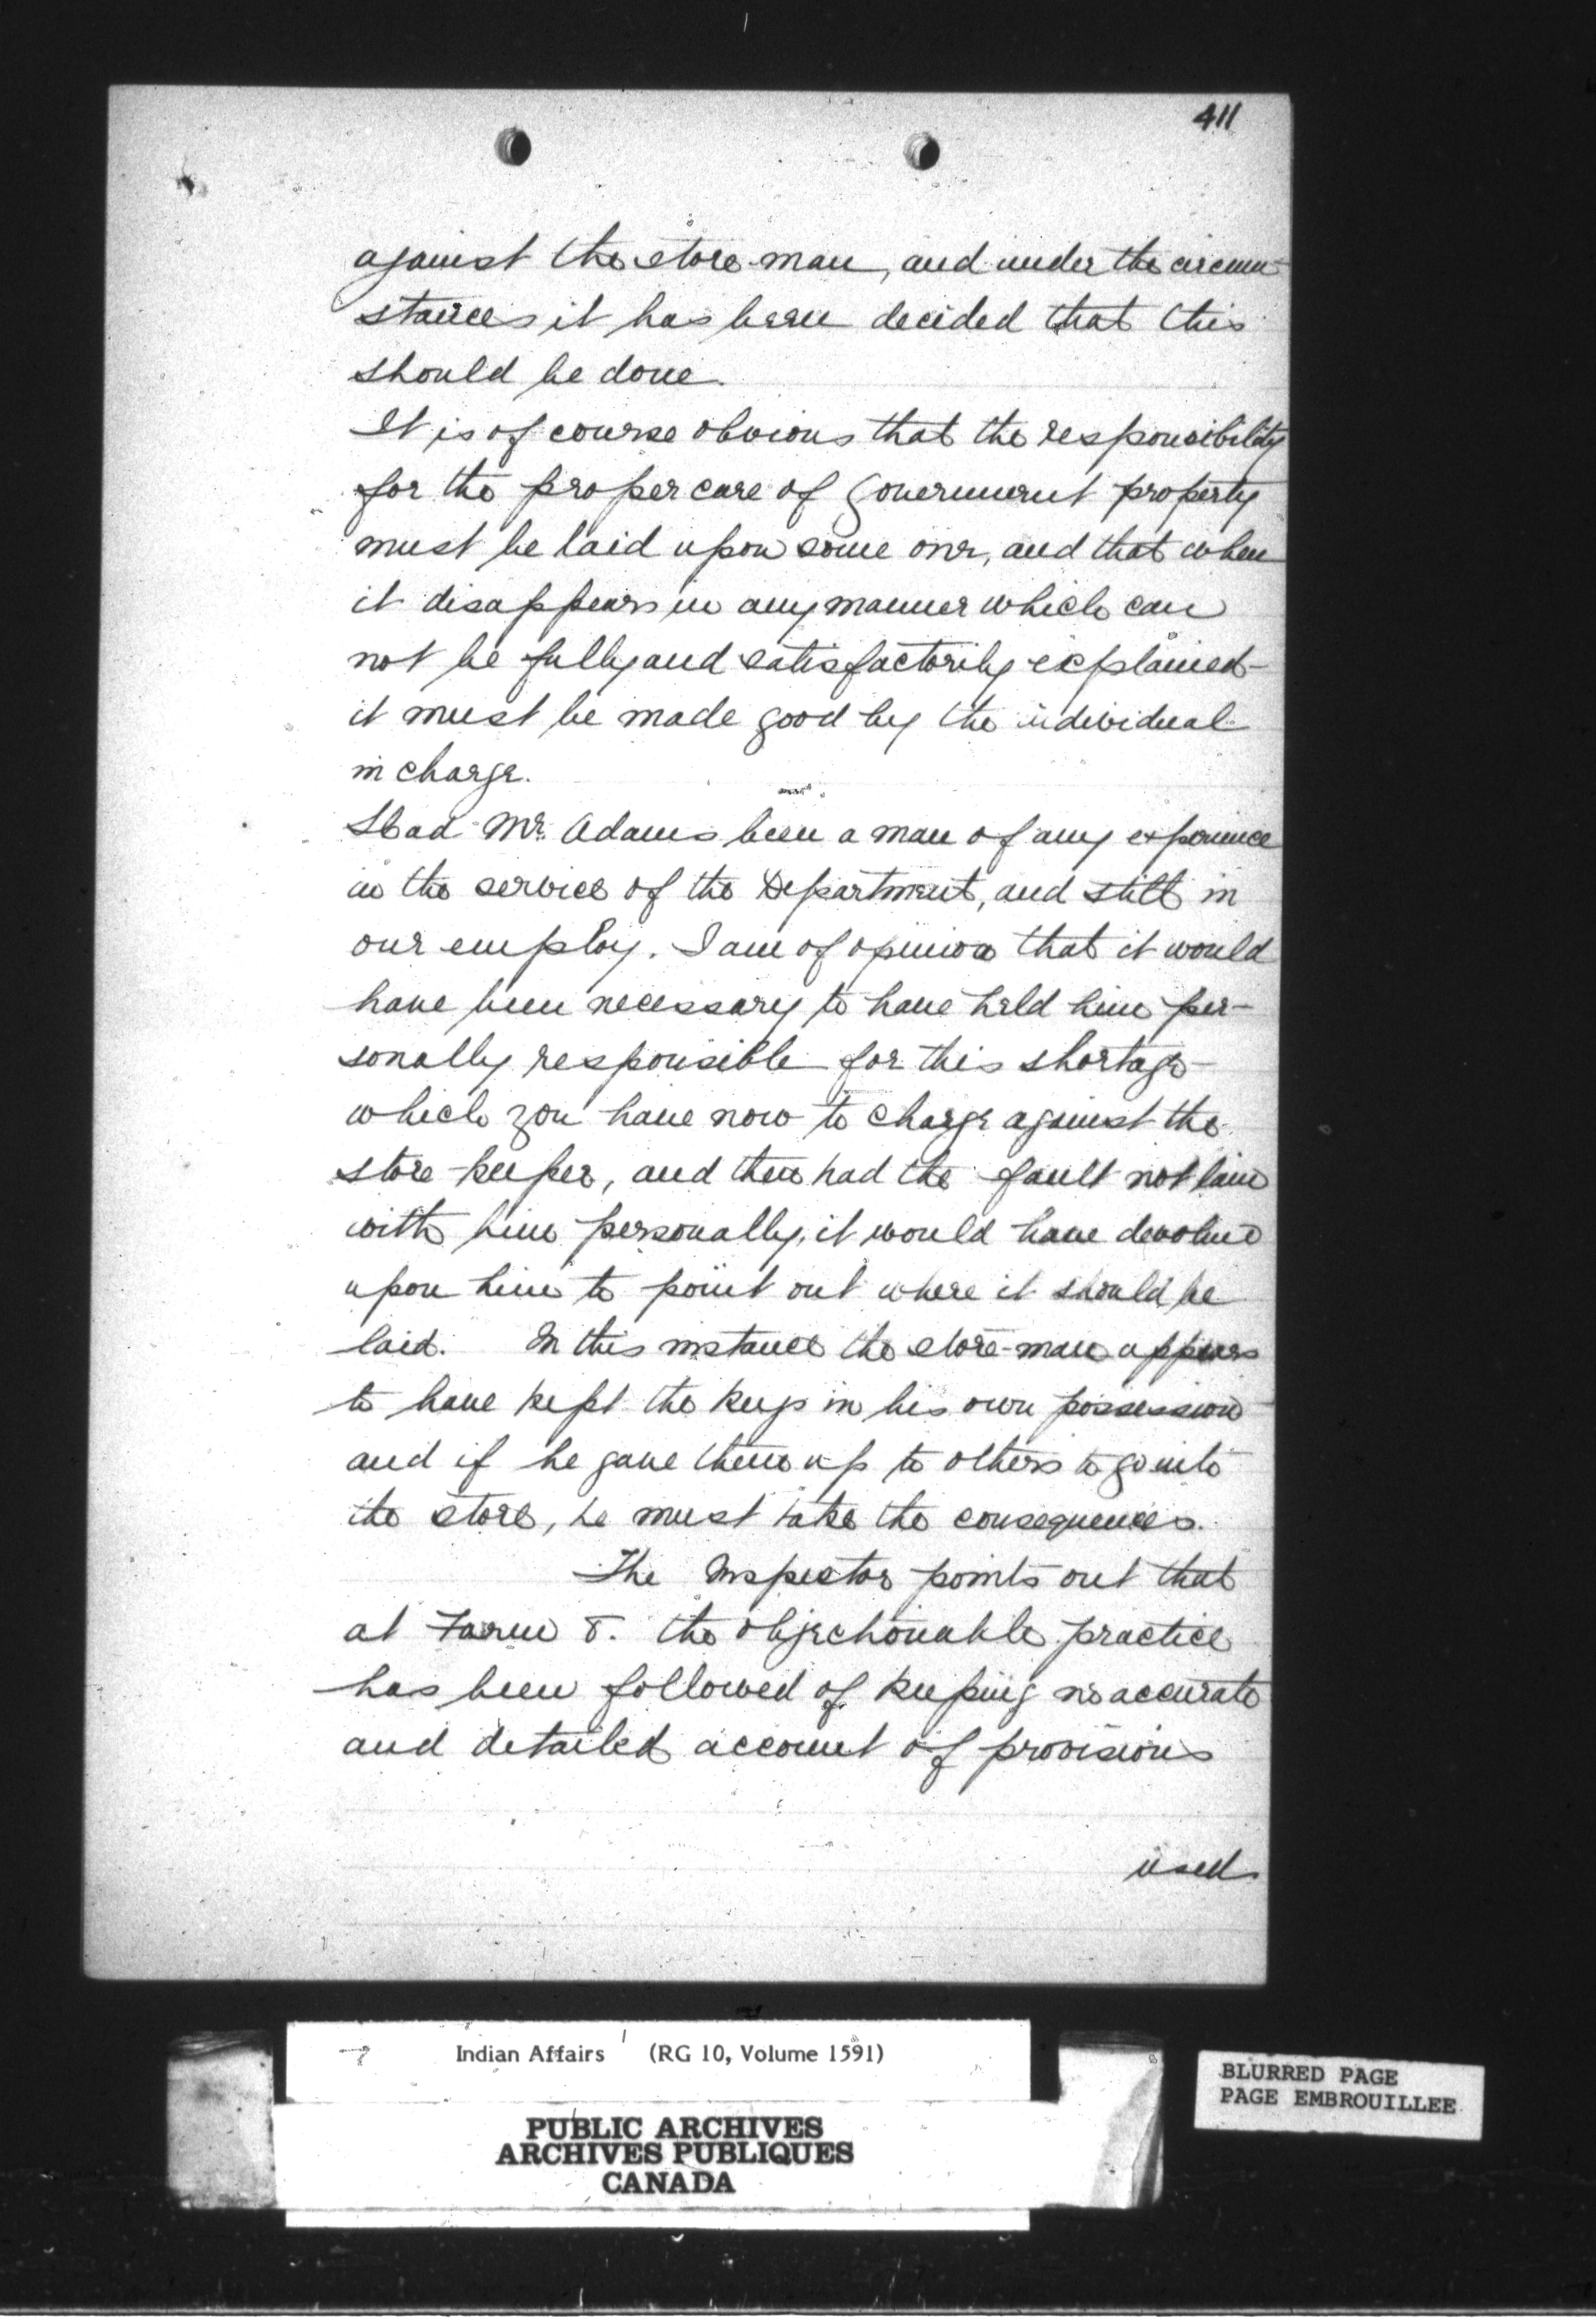 411
against the store-man, and under the circum-
stances it has been decided that this
should be done.
It is of course obvious that the responsibility
for the proper care of Government property
must be laid upon some one, and that when
it disappears in any manner which can
not be fully and satisfactorily explained
it must be made good by the individual
in charge.
Had Mr. Adams been a man of any experience
in the service of the Department, and still in
our employ. I am of opinion that it would
have been necessary to have held him per-
sonally responsible for this shortage
which you have now to charge against the
store-keeper, and then had the fault not lain
with him personally, it would have devolved
upon him to point out where it should be
laid. In this instance the store-man appears
to have kept the keys in his own possession
and if he gave them up to others to go into
the store, he must take the consequences.
The Inspector points out that
at Farm 8. the objectionable practice
has been followed of keeping no accurate
and detailed account of provisions
used
Indian Affairs (RG 10, Volume 1591)
PUBLIC ARCHIVES
ARCHIVES PUBLIQUES
CANADA
BLURRED PAGE
PAGE EMBROUILLEE